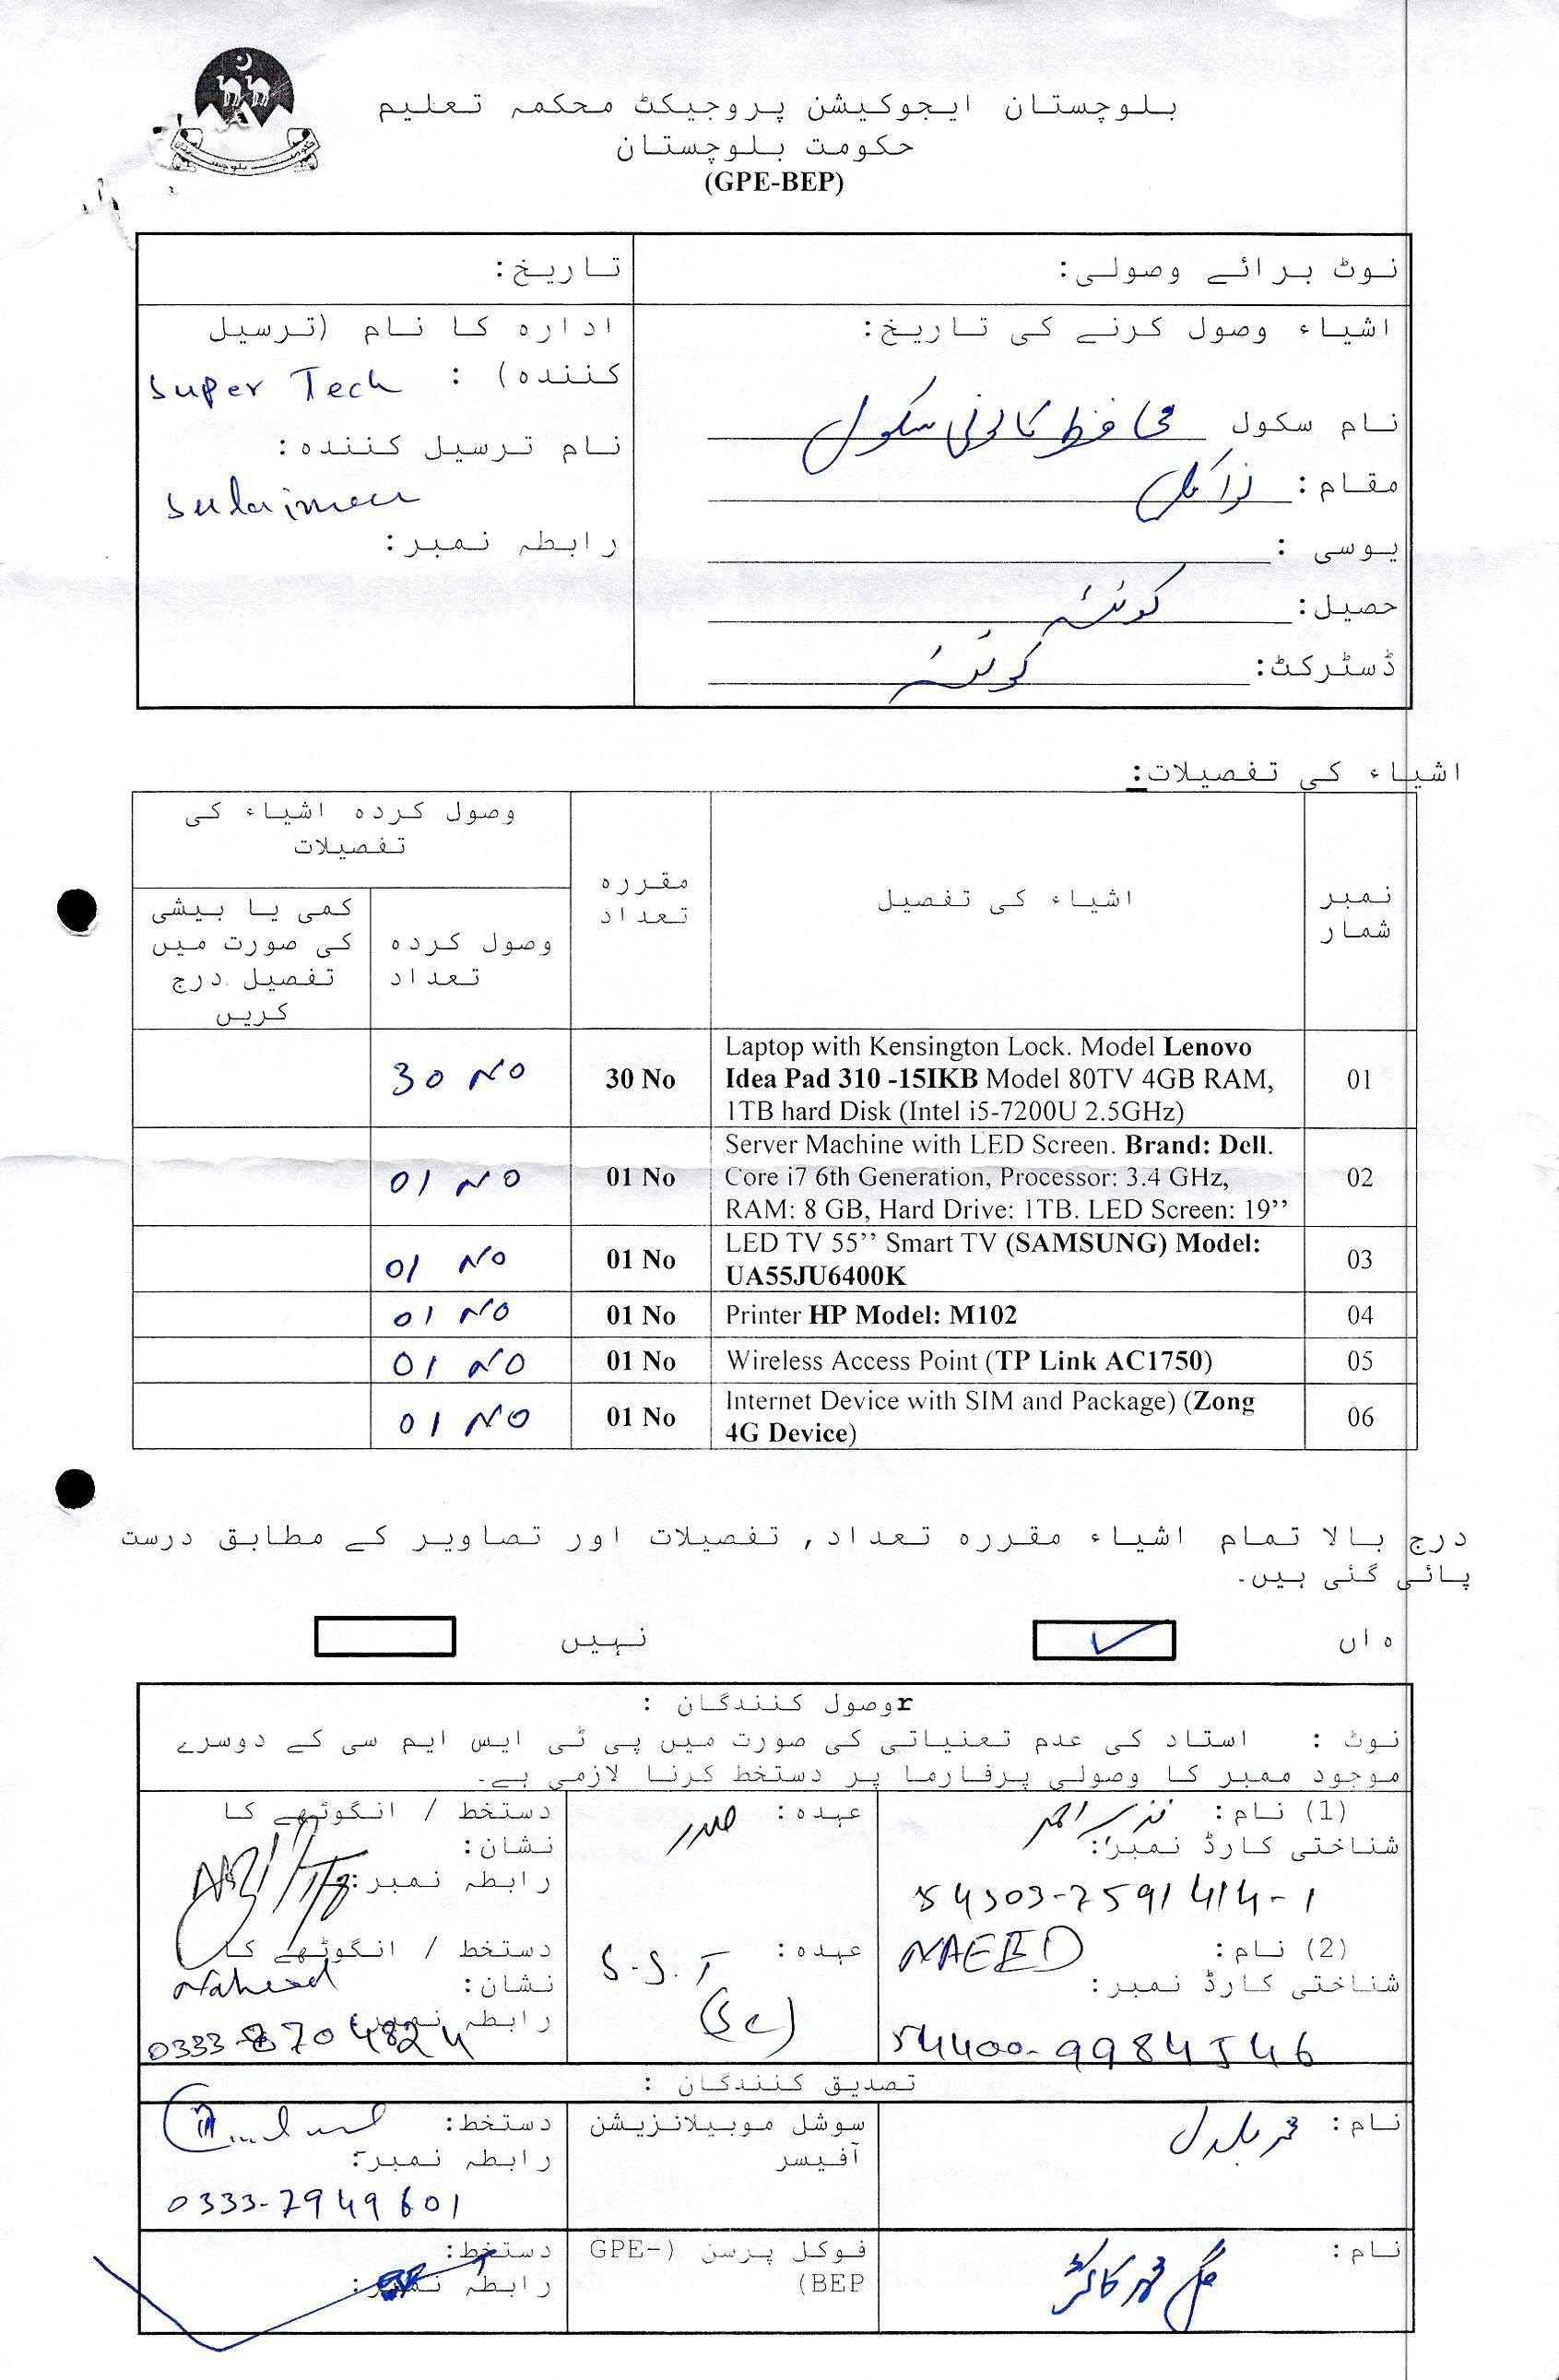 بلوچستان ایجوکیشن پروجیکٹ محکمہ تعلیم
حکومت بلوچستان
(GPE-BEP)
نوٹ برائے وصولی:
تاریخ:
اشیاء وصول کرنے کی تاریخ:
نام سکول محافظ کالونی سکول
مقام:
یوسی :
حصیل: کوئٹہ
ڈسٹرکٹ: کوئٹہ
ادارہ کا نام (ترسیل
کنندہ) : Super Tech
نام ترسیل کنندہ:
Sulaiman
رابطہ نمبر:
اشیاء کی تفصیلات:
نمبر شمار
اشیاء کی تفصیل
مقررہ تعداد
وصول کردہ اشیاء کی تفصیلات
وصول کردہ تعداد
کمی یا بیشی
کی صورت میں
تفصیل درج
کریں
01
Laptop with Kensington Lock. Model Lenovo
Idea Pad 310 -15IKB Model 80TV 4GB RAM,
1TB hard Disk (Intel i5-7200U 2.5GHz)
30 No
30 NO
02
Server Machine with LED Screen. Brand: Dell.
Core i7 6th Generation, Processor: 3.4 GHz,
RAM: 8 GB, Hard Drive: 1TB. LED Screen: 19’’
01 No
01 NO
03
LED TV 55’’ Smart TV (SAMSUNG) Model:
UA55JU6400K
01 No
01 NO
04
Printer HP Model: M102
01 No
01 NO
05
Wireless Access Point (TP Link AC1750)
01 No
01 NO
06
Internet Device with SIM and Package) (Zong
4G Device)
01 No
01 NO
درج بالا تمام اشیاء مقررہ تعداد, تفصیلات اور تصاویر کے مطابق درست
پائی گئی ہیں۔
ہ اں
نہیں
rوصول کنندگان :
نوٹ : استاد کی عدم تعنیاتی کی صورت میں پی ٹی ایس ایم سی کے دوسرے
موجود ممبر کا وصولی پرفارما پر دستخط کرنا لازمی ہے۔
(1) نام: نذیر احمد
شناختی کارڈ نمبر:
54303-2591414-1
عہدہ: صدر
دستخط / انگوٹھے کا
نشان:
رابطہ نمبر:
(2) نام: NAEED
شناختی کارڈ نمبر:
54400-9984546
عہدہ: S.S.T
(Sc)
دستخط / انگوٹھے کا
نشان: Naheed
رابطہ نمبر:
0333-8704824
تصدیق کنندگان :
نام:
سوشل موبیلائزیشن
آفیسر
دستخط:
رابطہ نمبر:
0333-7949601
نام:
فوکل پرسن (GPE-
BEP)
دستخط:
رابطہ نمبر: